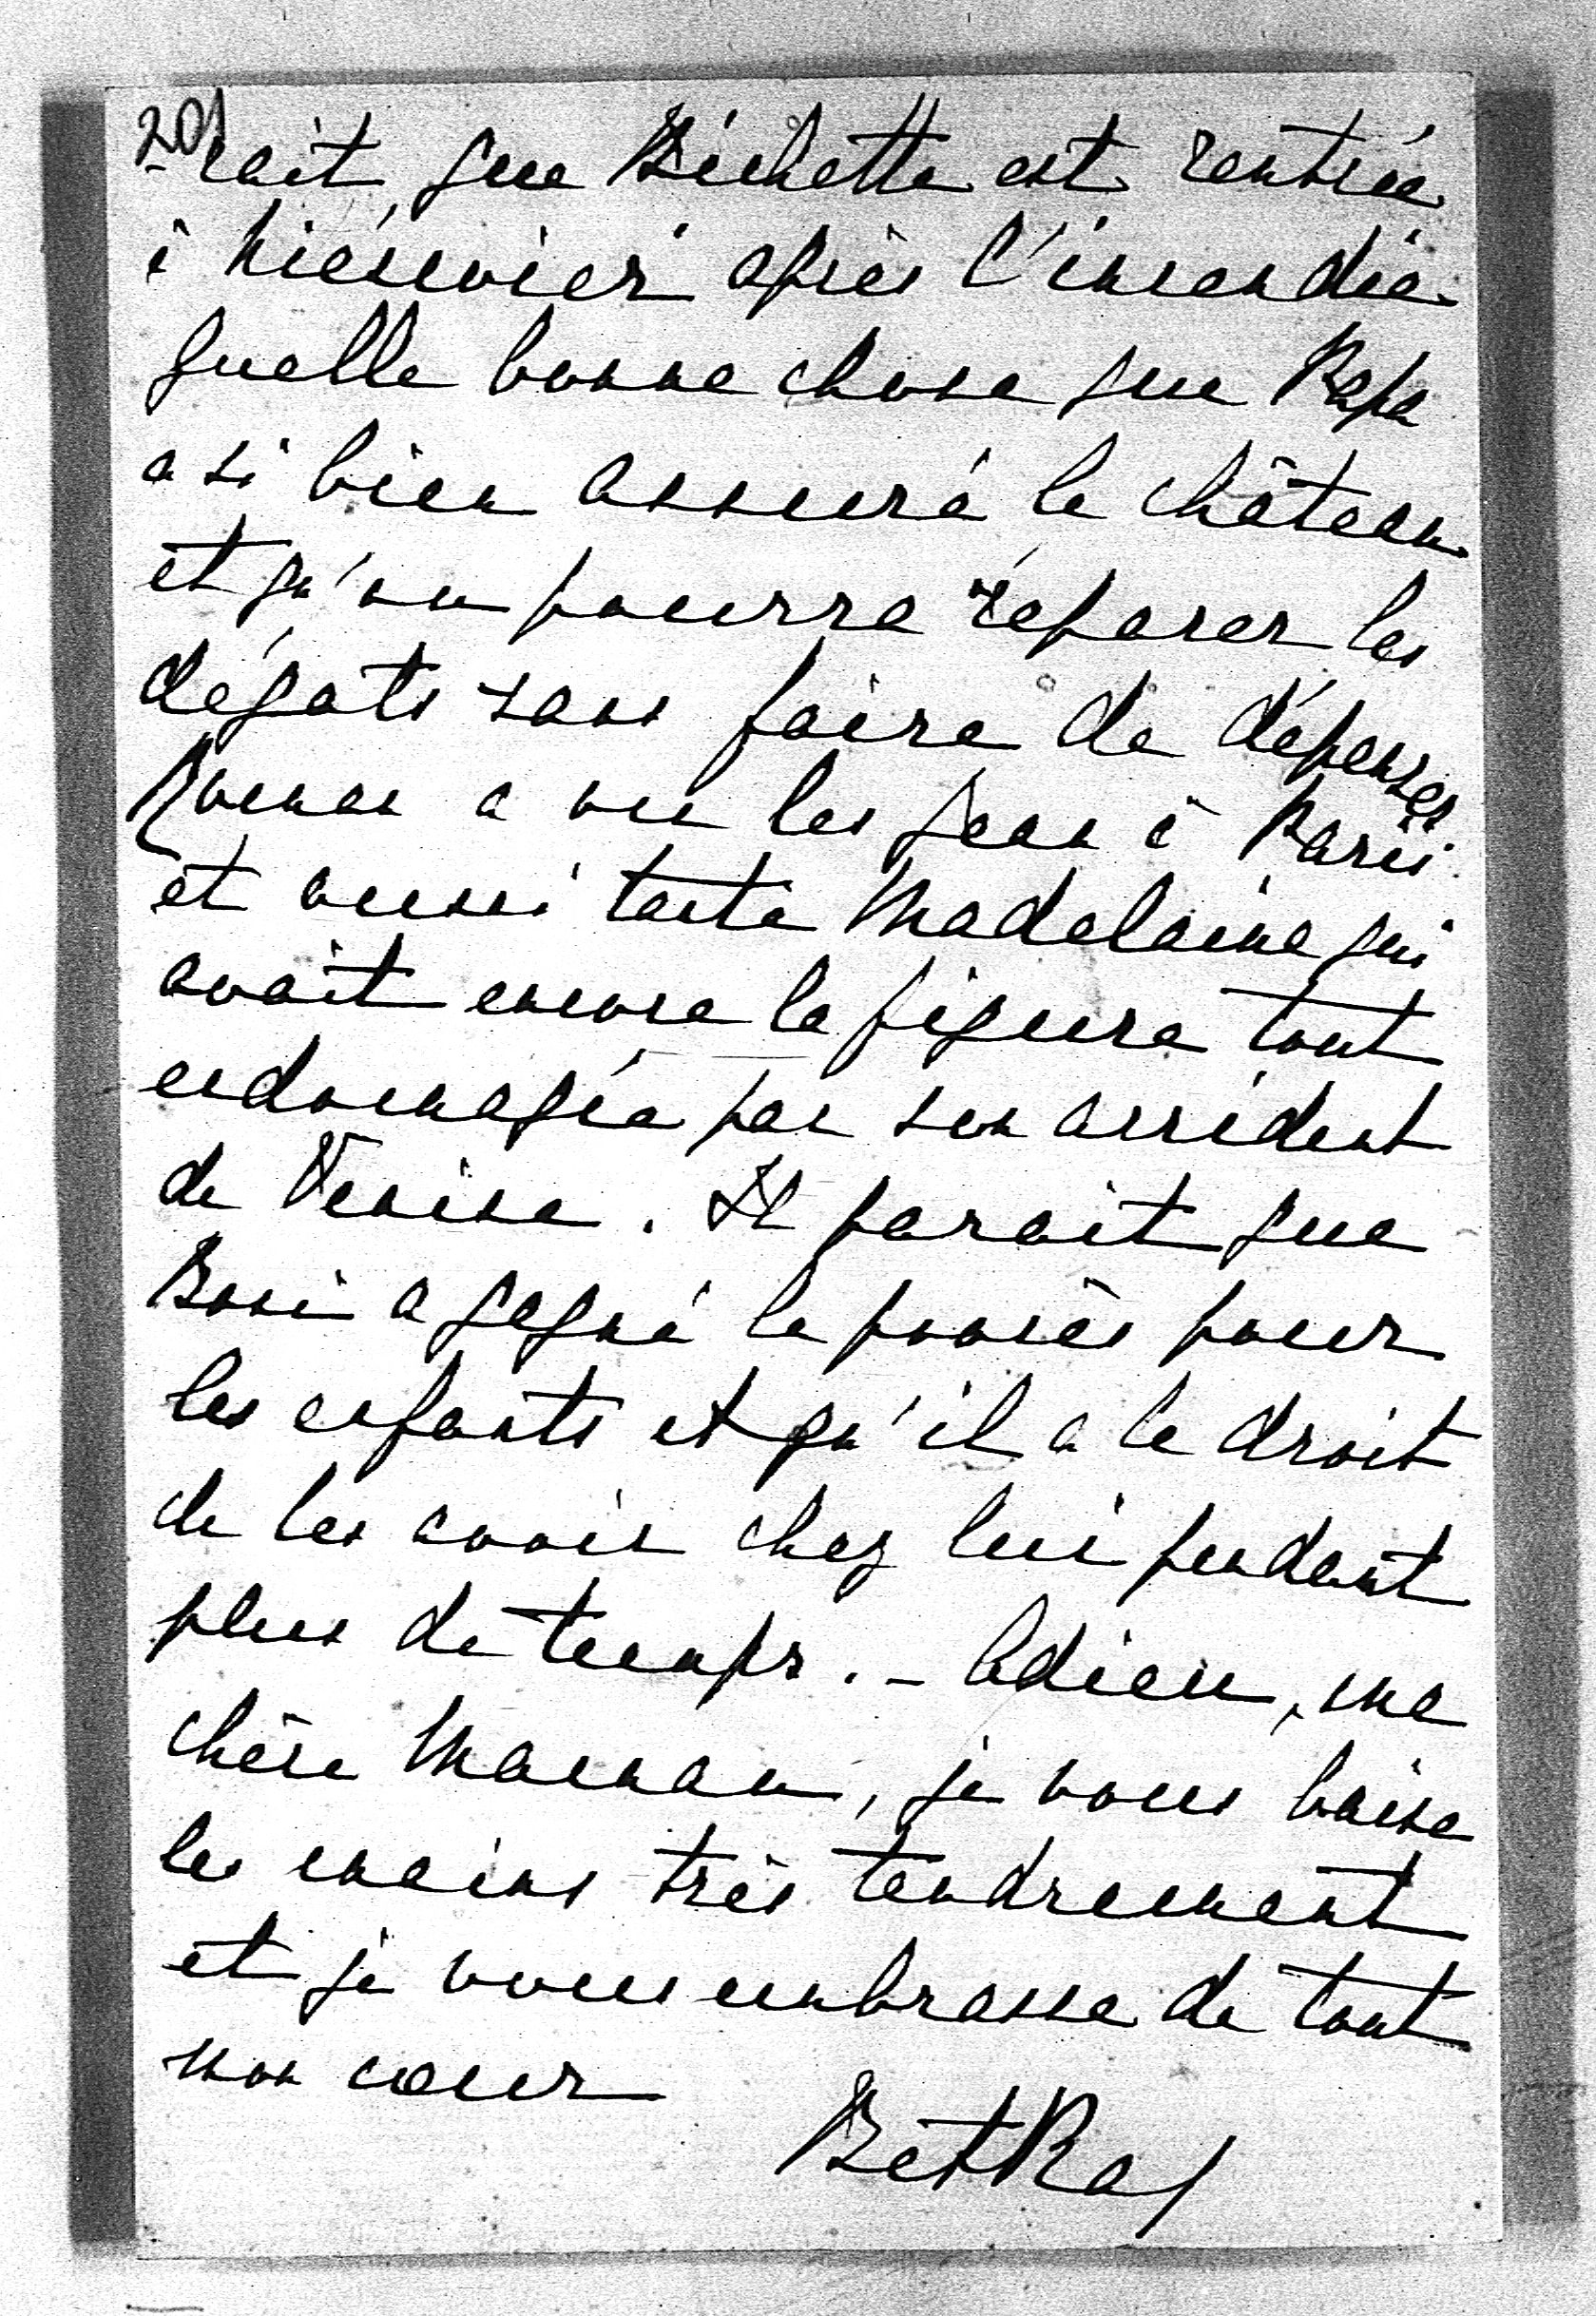 201
-rait que Bichette est rentrée
à Niéswież après l'incendie.
quelle bonne chose que Papa
a si bien assuré le château
et qu'on pourra réparer les
dégats sans faire de dépenses
Roman a vu les Jean à Paris
et aussi tante Madelaine qui
avait encore la figure tout
endomagée par son accident
de Venise. Il parait que
Boni a gagné le procès pour
les enfants et qu'il a le droit
de les avoir chez lui pendant
plus de temps. - Adieu, ma
chère Maman, je vous baise
les mains très tendrement
et je vous embrasse de tout
mon cœur
BetRaf